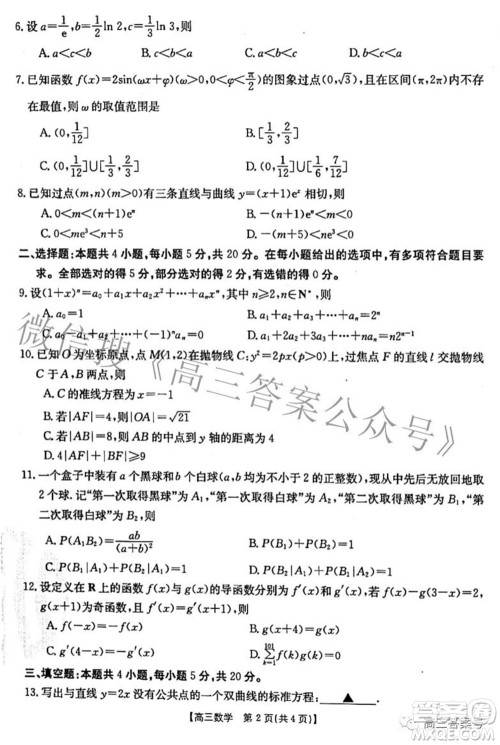 6.设 a=1/e,b=1/2 ln 2,c=1/3 ln 3,则
A.a<c<b B.c<a<b C.a<b<c D.b<c<a
7.已知函数 f(x)=2sin(ωx+φ)(ω>0,0<φ<π/2)的图象过点(0,√3),且在区间(π,2π)内不存
在最值,则 ω 的取值范围是
A.(0,1/12] B.[1/4,2/3]
C.(0,1/12]∪[1/3,2/3] D.(0,1/12]∪[1/6,7/12]
8.已知过点(m,n)(m>0)有三条直线与曲线 y=(x+1)eˣ 相切,则
A.0<m<(n+1)eⁿ B.-(n+1)eⁿ<m<0
C.0<me³<n+5 D.-n-5<me³<0
二、选择题:本题共 4 小题,每小题 5 分,共 20 分。在每小题给出的选项中,有多项符合题目要
求。全部选对的得 5 分,部分选对的得 2 分,有选错的得 0 分。
9.设(1+x)ⁿ=a₀+a₁x+a₂x²+⋯+aₙxⁿ,其中 n≥2,n∈N*,则
A.a₀=1
10.已知 O 为坐标原点,点 M(1,2)在抛物线 C:y²=2px(p>0)上,过焦点 F 的直线 l 交抛物线
C 于 A,B 两点,则
A.C 的准线方程为 x=-1
B.若|AF|=4,则|OA|=√21
C.若|AB|=8,则 AB 的中点到 y 轴的距离为 4
D.4|AF|+|BF|≥9
11.一个盒子中装有 a 个黑球和 b 个白球(a,b 均为不小于 2 的正整数),现从中先后无放回地取
2 个球.记“第一次取得黑球”为 A₁,“第一次取得白球”为 A₂,“第二次取得黑球”为 B₁,“第
二次取得白球”为 B₂,则
A.P(A₁B₂)=ab/(a+b)² B.P(B₁)+P(B₂)=1
C.P(B₁|A₁)+P(B₂|A₁)=1 D.P(B₂|A₁)>P(B₁|A₂)
12.设定义在 R 上的函数 f(x)与 g(x)的导函数分别为 f′(x)和 g′(x),若
g(x+1)为奇函数,则
三、填空题:本题共 4 小题,每小题 5 分,共 20 分。
13.写出与直线 y=2x 没有公共点的一个双曲线的标准方程: ▲ .
【高三数学 第 2 页(共 4 页)】
微信搜《高三答案公众号》
高三答案号